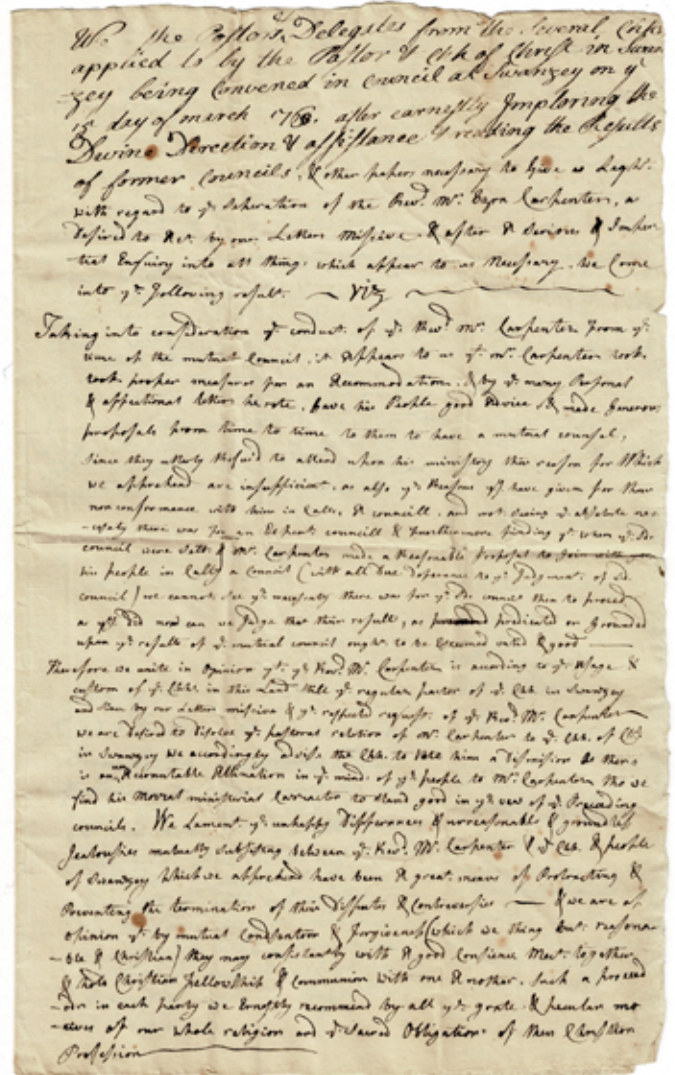 We the Pastors & Delegates from the Several Chhs
applied to by the Pastor & Chh of Christ in Swan
-zey being Convened in Council at Swanzey on ye
day of march 176 . after earnestly Imploring the
Divine Direction & assistance & reading the Results
of former Councils, & other papers necessary to Give us Light.
with regard to ye Seperation of the Revd. Mr. Ezra Carpenter, as
desired to Act by our Letters Missive. & after A Serious & Imper
-tial Enquiry into all things which appear to us Necessary. We Come
into ye following result. — Viz
Taking into consideration ye conduct of ye Revd. Mr. Carpenter from ye
time of the mutual Council it Appears to us yt mr. Carpenter took
took proper measures for an Accomodation, & by ye many Personal
& affectional letters he rote, Gave his People good Advice & made Generous
proposals from time to time to them to have a mutual counsel,
since they utterly Refusd to attend upon his ministery thir reason for Which
we apprehend are insufficient, as also ye Reasons yt have given for thair
non conformance with him in Calling A councill, and not Seeing ye absolute nec
-essity there was for an Exparte councill & furthermore finding yt when ye Sd.
council were Satt & Mr. Carpenter made a Reasonable proposal to Join with
his people in Calling a Council (with all Due Deferance to ye Judgment of Sd.
council) we cannot See ye necessity there was for ye Sd. council then to proceed
as yy did nor can we Judge that thir result, as predicated or Grounded
upon ye result of ye mutual council ought to be Esteemed valid & good —
Therefore we unite in Opinion yt ye Revd. Mr. Carpenter is according to ye Usage &
custom of ye Chhs in this Land still ye regular pastor of ye Chh. in Swanzey
and Seen by our Letters missive & ye repeated request of ye Revd. Mr. Carpenter
we are desired to disolve ye pastoral relation of mr. Carpenter to ye Chh. of
in Swanzey we accordingly advise the Chh. to Vote him a Dismission As there
is an unAccountable Alienation in ye minds of ye people to Mr. Carpenter, Tho we
find his Moral ministerial Carractor to Stand good in ye vew of ye Preceading
councils. We Lament ye unhappy Differences & unreasonable & groundless
Jealousies mutually subsisting between ye Revd. Mr. Carpenter & ye Chh. & people
of Swanzey Which we apprehend have been A great means of Protracting &
Preventing the termination of their Disputes & Controversies — & we are of
opinion yt by mutual Condesention & forgiveness (which we thing but reasona
-ble & Christian) they may consistantly with A good Consience Meet together
& hold Christian fellowship & Communion with one Another. Such a proceed
-ure in each party we Ernestly recommend by all ye grate & peculiar mo
-tives of our whole religion and ye Sacred Obligations of their Christian
Profession